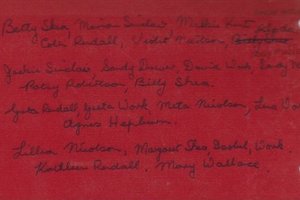 Betty Shea, Miriam Sinclair, Millie Kent
Colin Randall, Violet Nicolson,
Jackie Sinclair, Sandy Dewar, David Work, Sandy
Patsy Robertson, Billy Shea.
Greta Randall, Greta Work, Meta Nicolson, Lena
Agnes Hepburn.
Lillian Nicolson, Margaret Work.
Kathleen Randall. Mary Wallace.